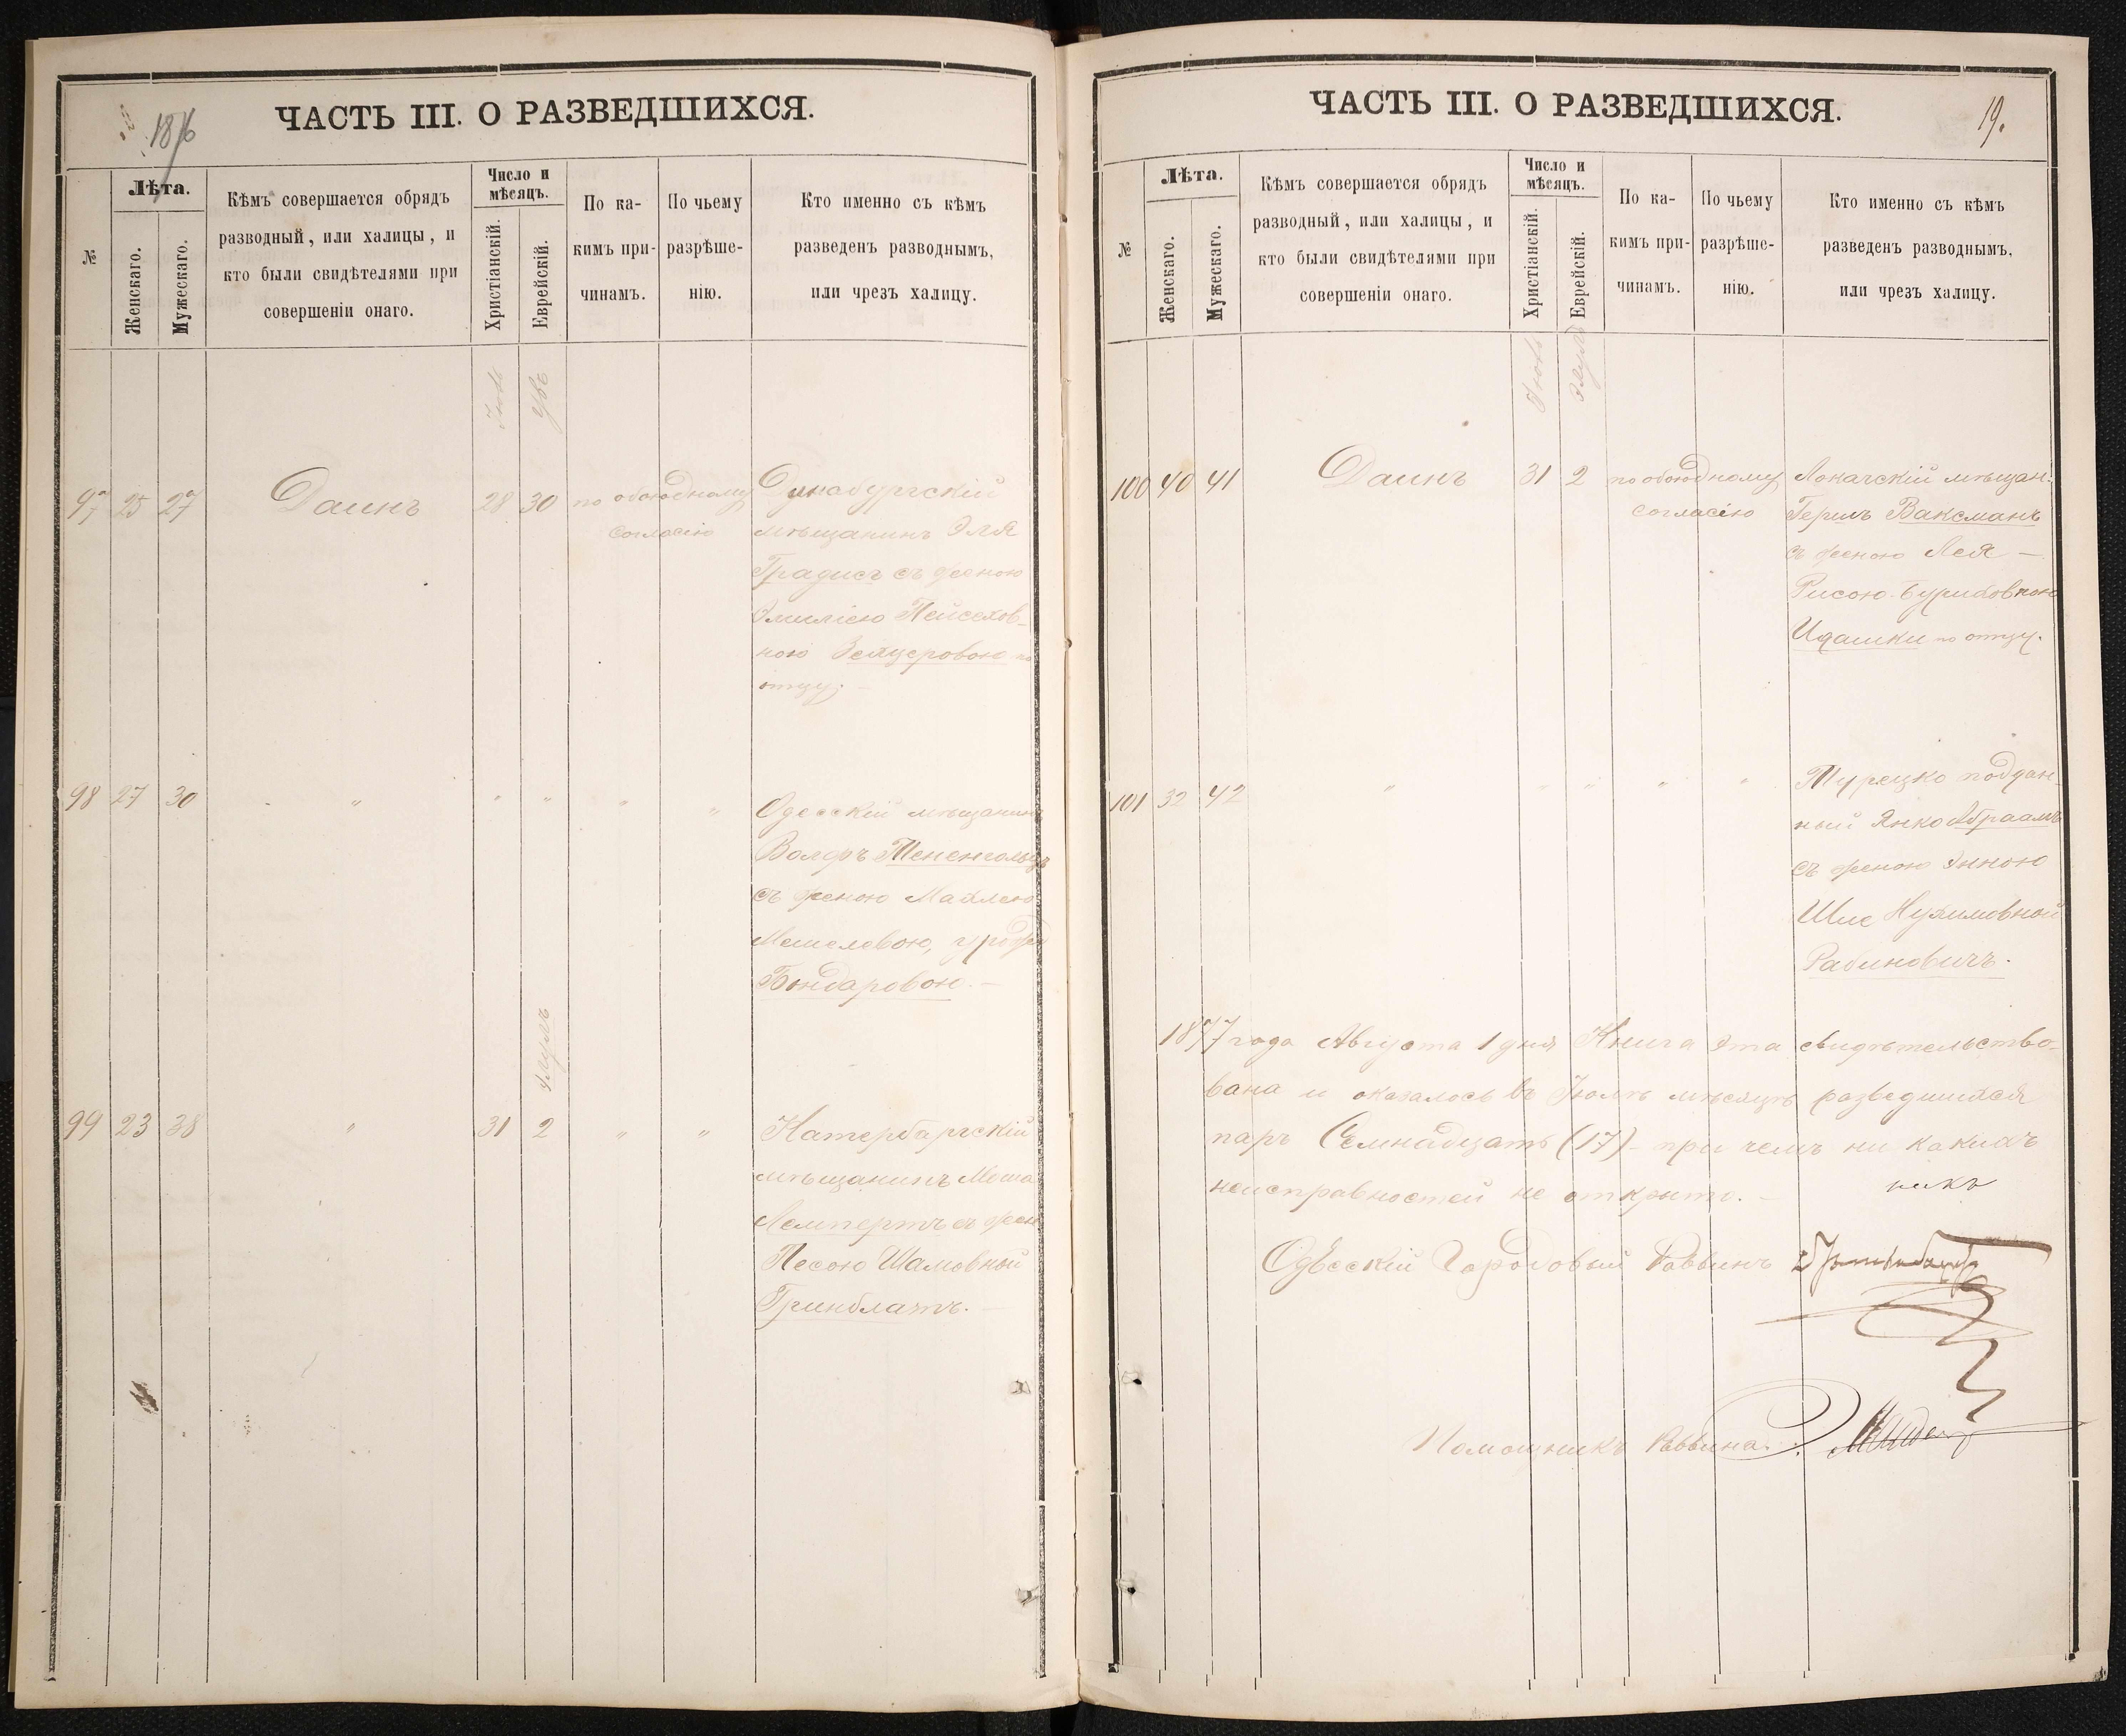 1876
ЧАСТЬ III. О РАЗВЕДШИХСЯ.
№
Лѣта.
Женскаго.
Мужескаго.
Кѣмъ совершается обрядъ
разводный, или халицы, и
кто были свидѣтелями при
совершеніи онаго.
Число и
мѣсяцъ.
Христіанскій.
Еврейскій.
По ка-
кимъ при-
чинамъ.
По чьему
разрѣше-
нію.
Кто именно съ кѣмъ
разведенъ разводнымъ,
или чрезъ халицу.
97 25 27 Даинъ 28 30 по обоюдному Динабургскій
согласію мѣщанинъ Эля
Градисъ съ женою
Эмиліею Пейсехов-
ною Зейцеровою по
отцу.
98 27 30 " " " " " Одесскій мѣщанинъ
Волфъ Тененгольцъ
съ женою Маилею
Мошелевою,
Бондаровою.
Элулъ
99 23 38 " 31 2 " " 
мѣщанинъ Моша
Лемпертъ съ жен
Песою Шамовной
Гринблатъ.
ЧАСТЬ III. О РАЗВЕДШИХСЯ.
19.
№
Лѣта.
Женскаго.
Мужескаго.
Кѣмъ совершается обрядъ
разводный, или халицы, и
кто были свидѣтелями при
совершеніи онаго.
Число и
мѣсяцъ.
Христіанскій.
Еврейскій.
По ка-
кимъ при-
чинамъ.
По чьему
разрѣше-
нію.
Кто именно съ кѣмъ
разведенъ разводнымъ,
или чрезъ халицу.
Іюль
Элулъ
100 40 41 Даинъ 31 2 по обоюдному Локачскій мѣщан:
согласію Герилъ Ваксманъ
съ женою Лея —
Рисою
по отцу.
101 32 42 " " " " " Турецко поддан-
ный Янко Абраамъ
съ женою Энною
Шие Нухимовной
Рабиновичъ.
1877 года Августа 1 дня Книга эта свидѣтельство-
вана и оказалось въ Іюлѣ мѣсяцѣ разведшихся
паръ Семнадцать (17) – при чемъ ни какихъ
неисправностей не открыто. –
Одесскій Городовый Раввинъ
Помощникъ Раввина